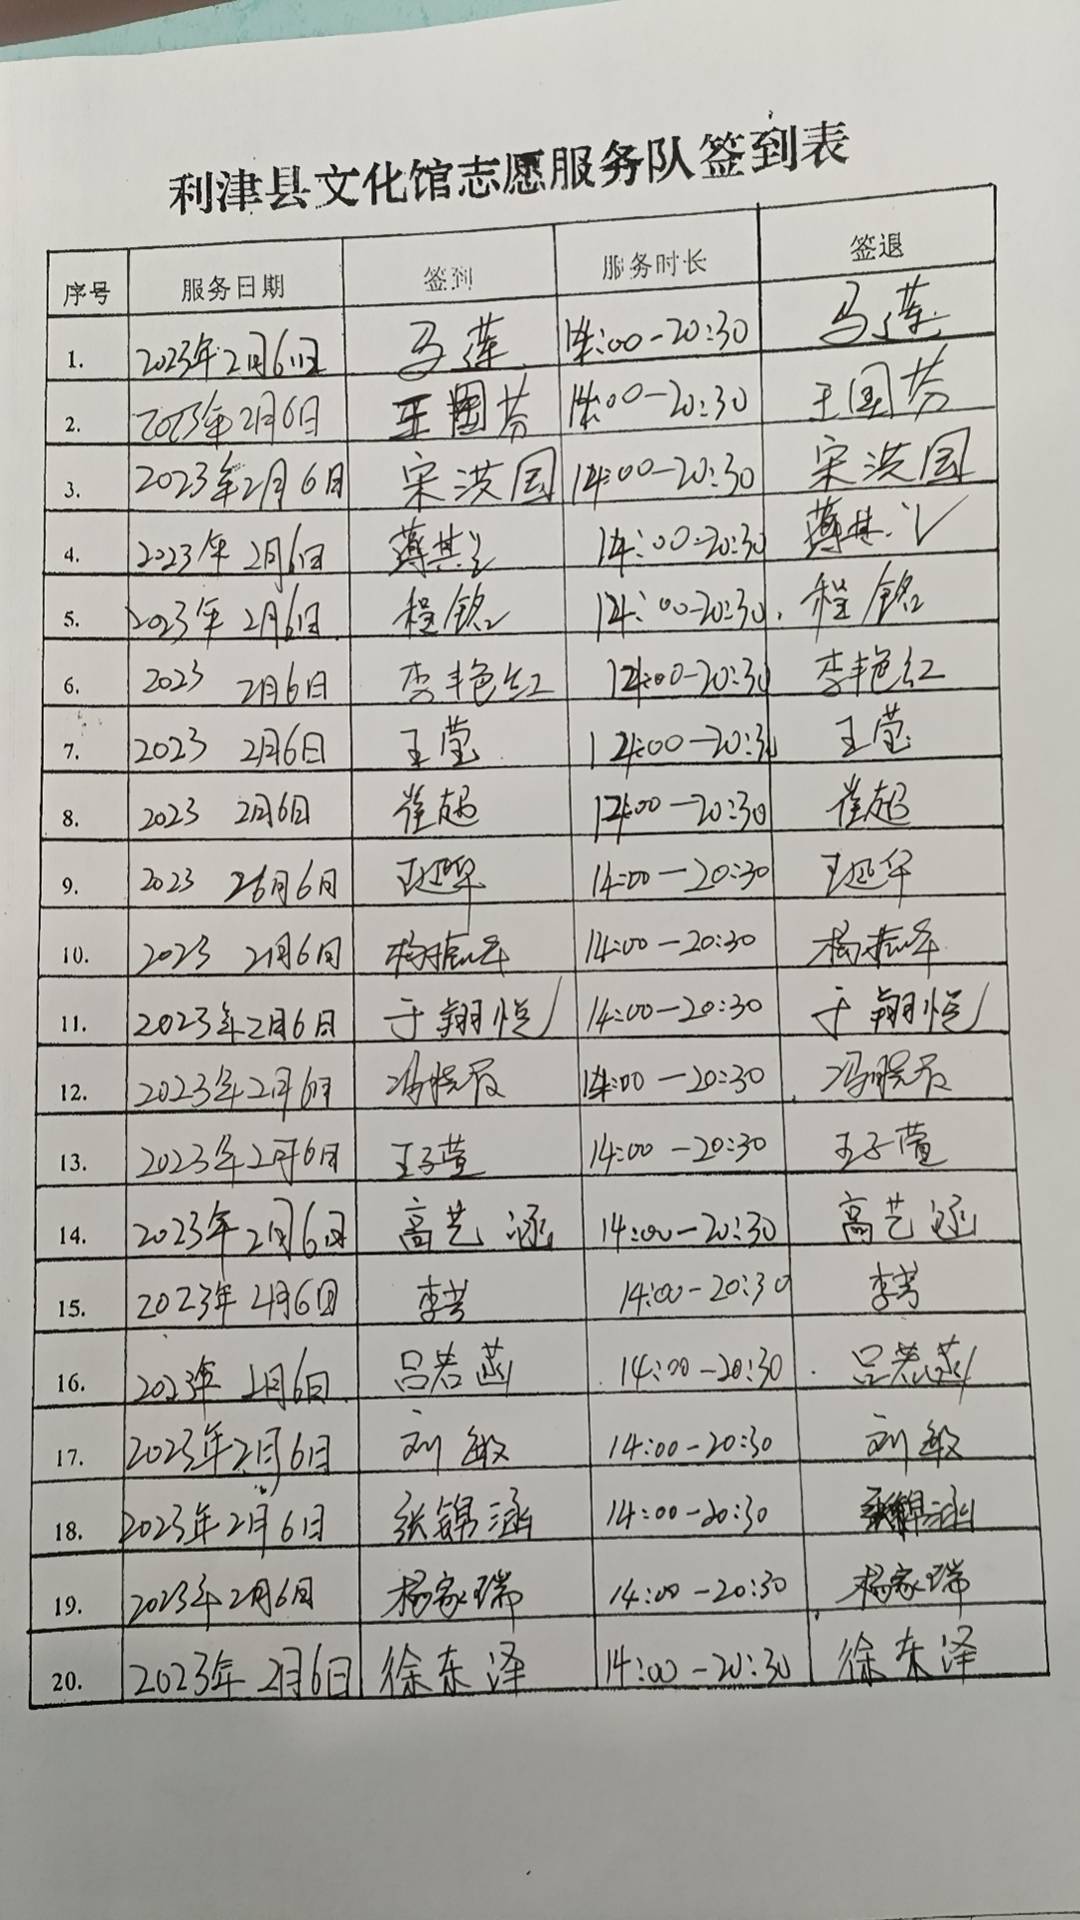 利津县文化馆志愿服务队签到表
序号 服务日期 签到 服务时长 签退
1. 2023年2月6日 马莲 14:00-20:30 马莲
2. 2023年2月6日 王国芬 14:00-20:30 王国芬
3. 2023年2月6日 宋洪国 14:00-20:30 宋洪国
4. 2023年2月6日 薄其 14:00-20:30 薄其
5. 2023年2月6日 程铭 14:00-20:30 程铭
6. 2023 2月6日 李艳红 14:00-20:30 李艳红
7. 2023 2月6日 王莹 14:00-20:30 王莹
8. 2023 2月6日 崔超 14:00-20:30 崔超
9. 2023 2月6日 王延华 14:00-20:30 王延华
10. 2023 2月6日 杨振军 14:00-20:30 杨振军
11. 2023年2月6日 于翔悦 14:00-20:30 于翔悦
12. 2023年2月6日 冯晓 14:00-20:30 冯晓
13. 2023年2月6日 王子萱 14:00-20:30 王子萱
14. 2023年2月6日 高艺涵 14:00-20:30 高艺涵
15. 2023年2月6日 李芳 14:00-20:30 李芳
16. 2023年2月6日 吕若菡 14:00-20:30 吕若菡
17. 2023年2月6日 刘敏 14:00-20:30 刘敏
18. 2023年2月6日 张锦涵 14:00-20:30 张锦涵
19. 2023年2月6日 杨家瑞 14:00-20:30 杨家瑞
20. 2023年2月6日 徐东泽 14:00-20:30 徐东泽